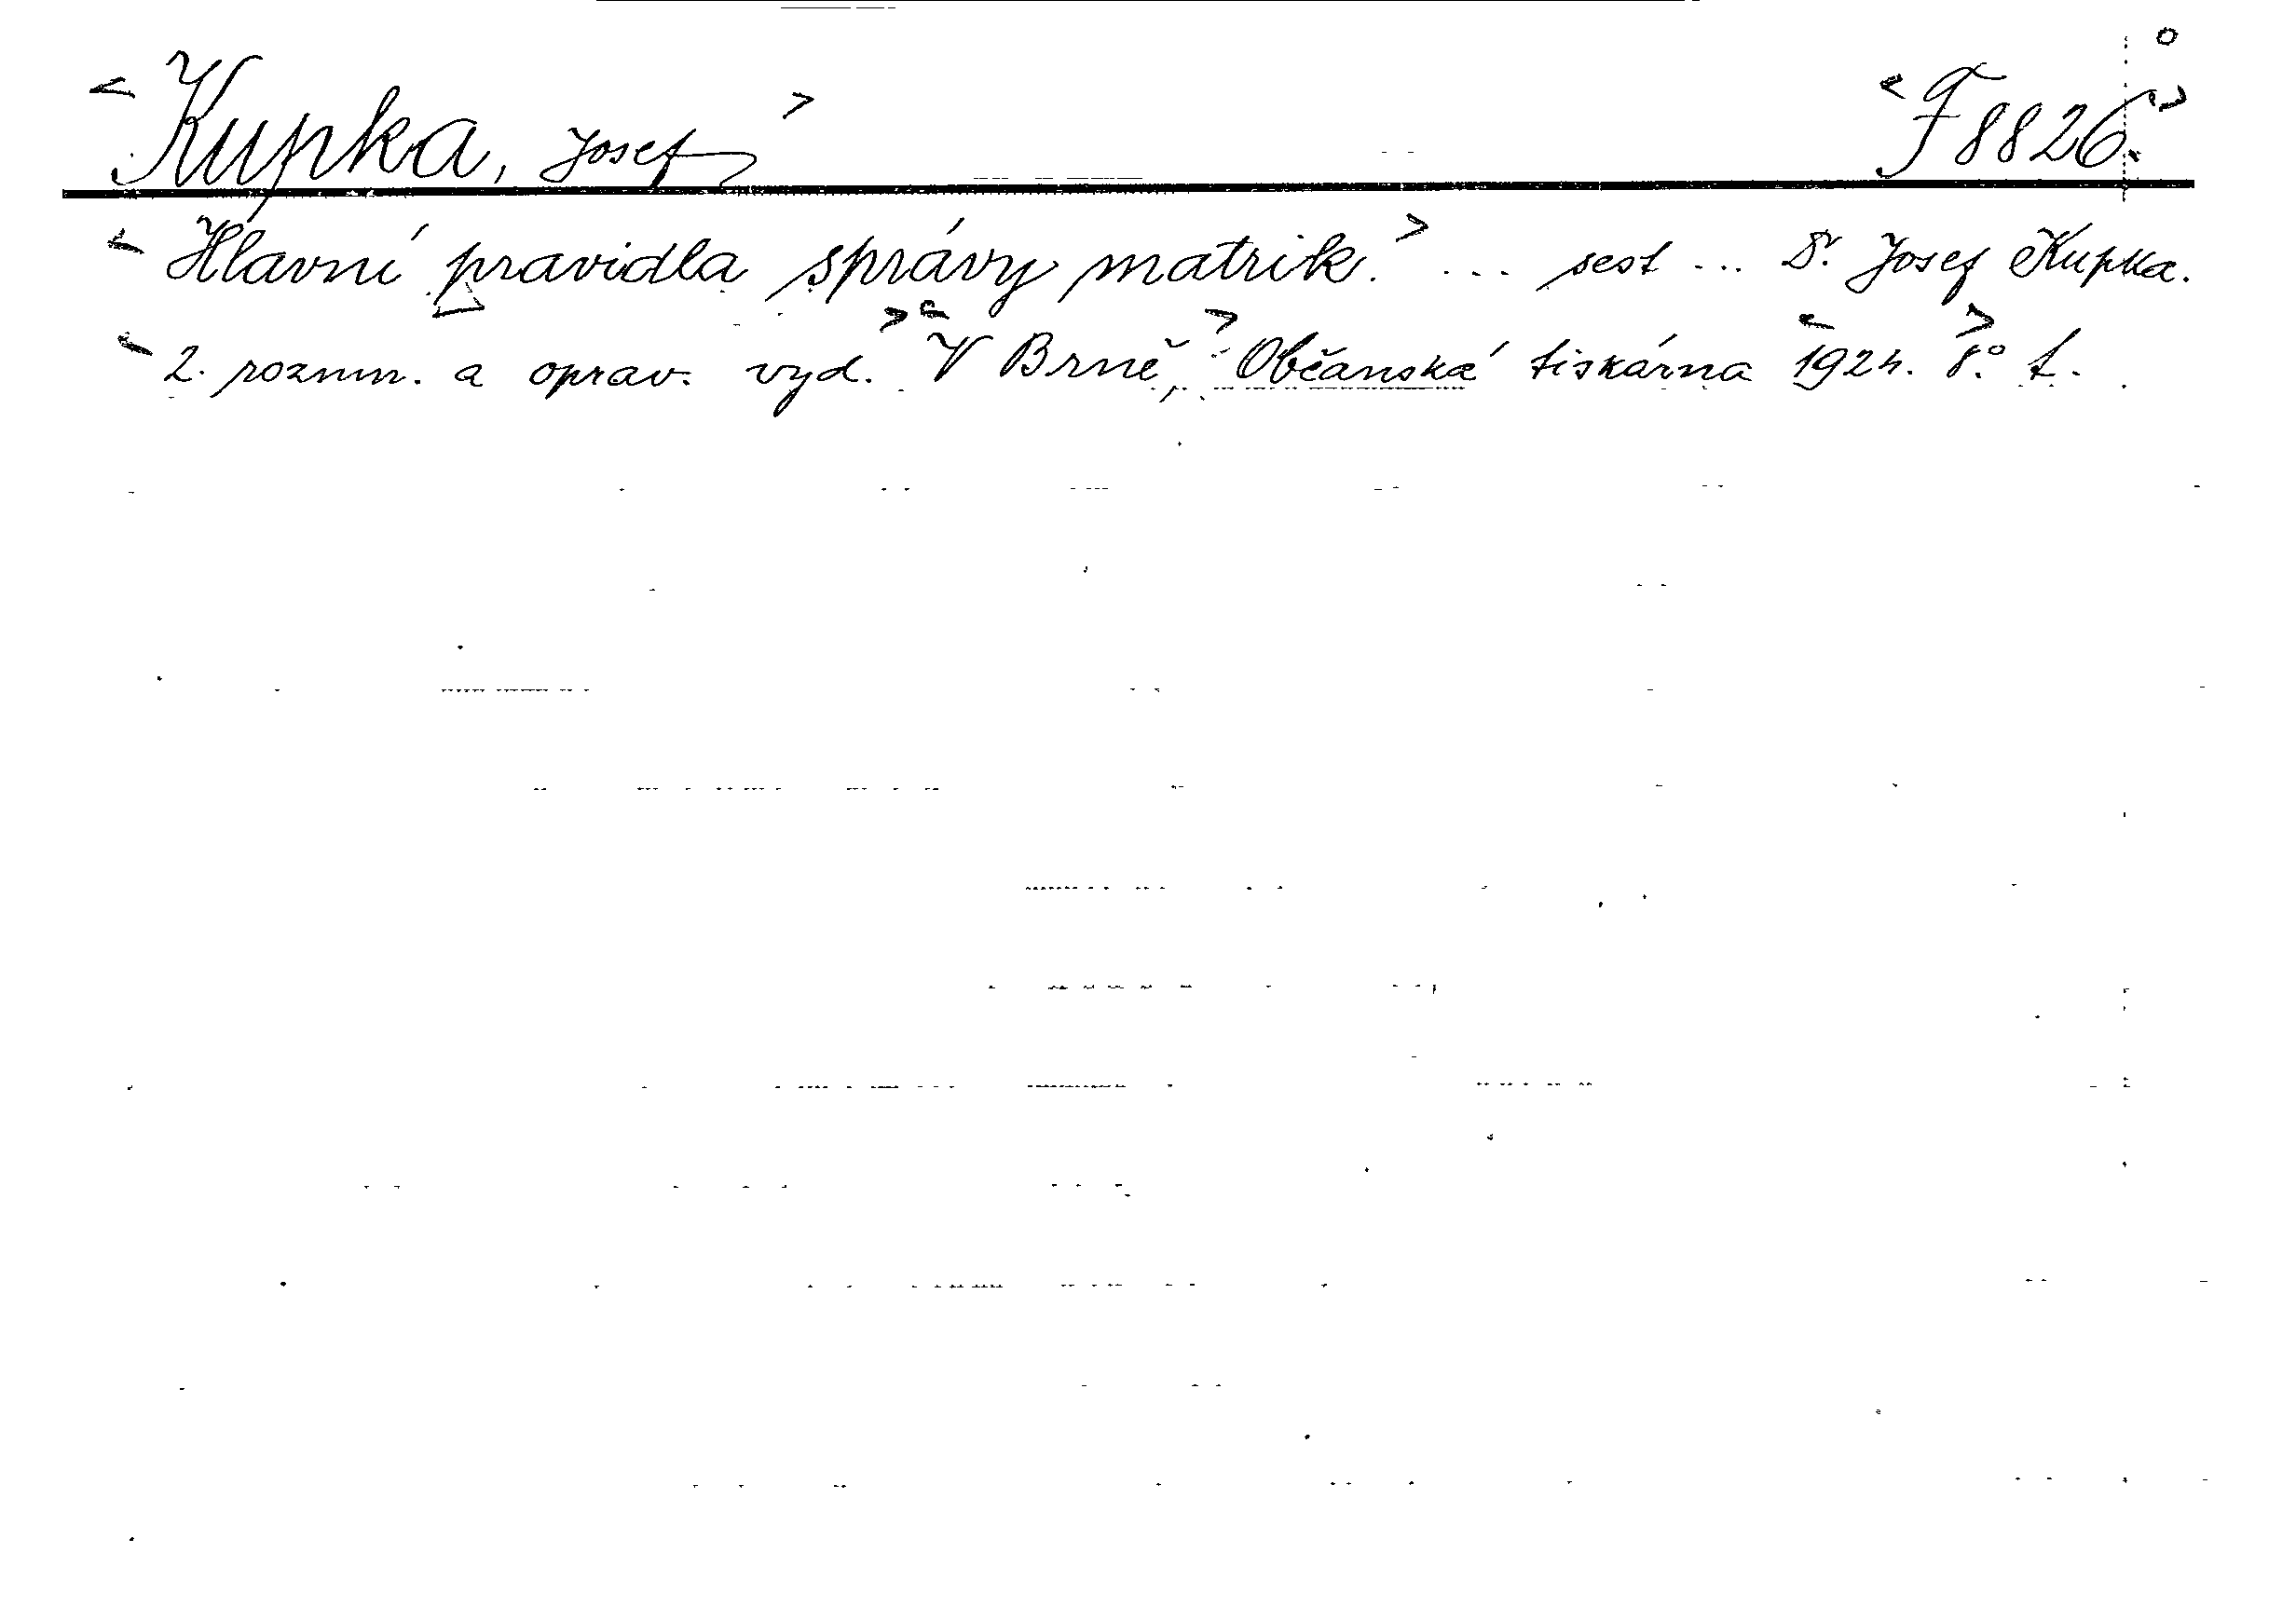 < Kupka, Josef > < F 8826. >
< Hlavní pravidla správy matrik. > ... sest ... Dr. Josef Kupka.
< 2. rozmn. a oprav. vyd. > < V Brně, > Občanská tiskárna < 1924. > 8°.